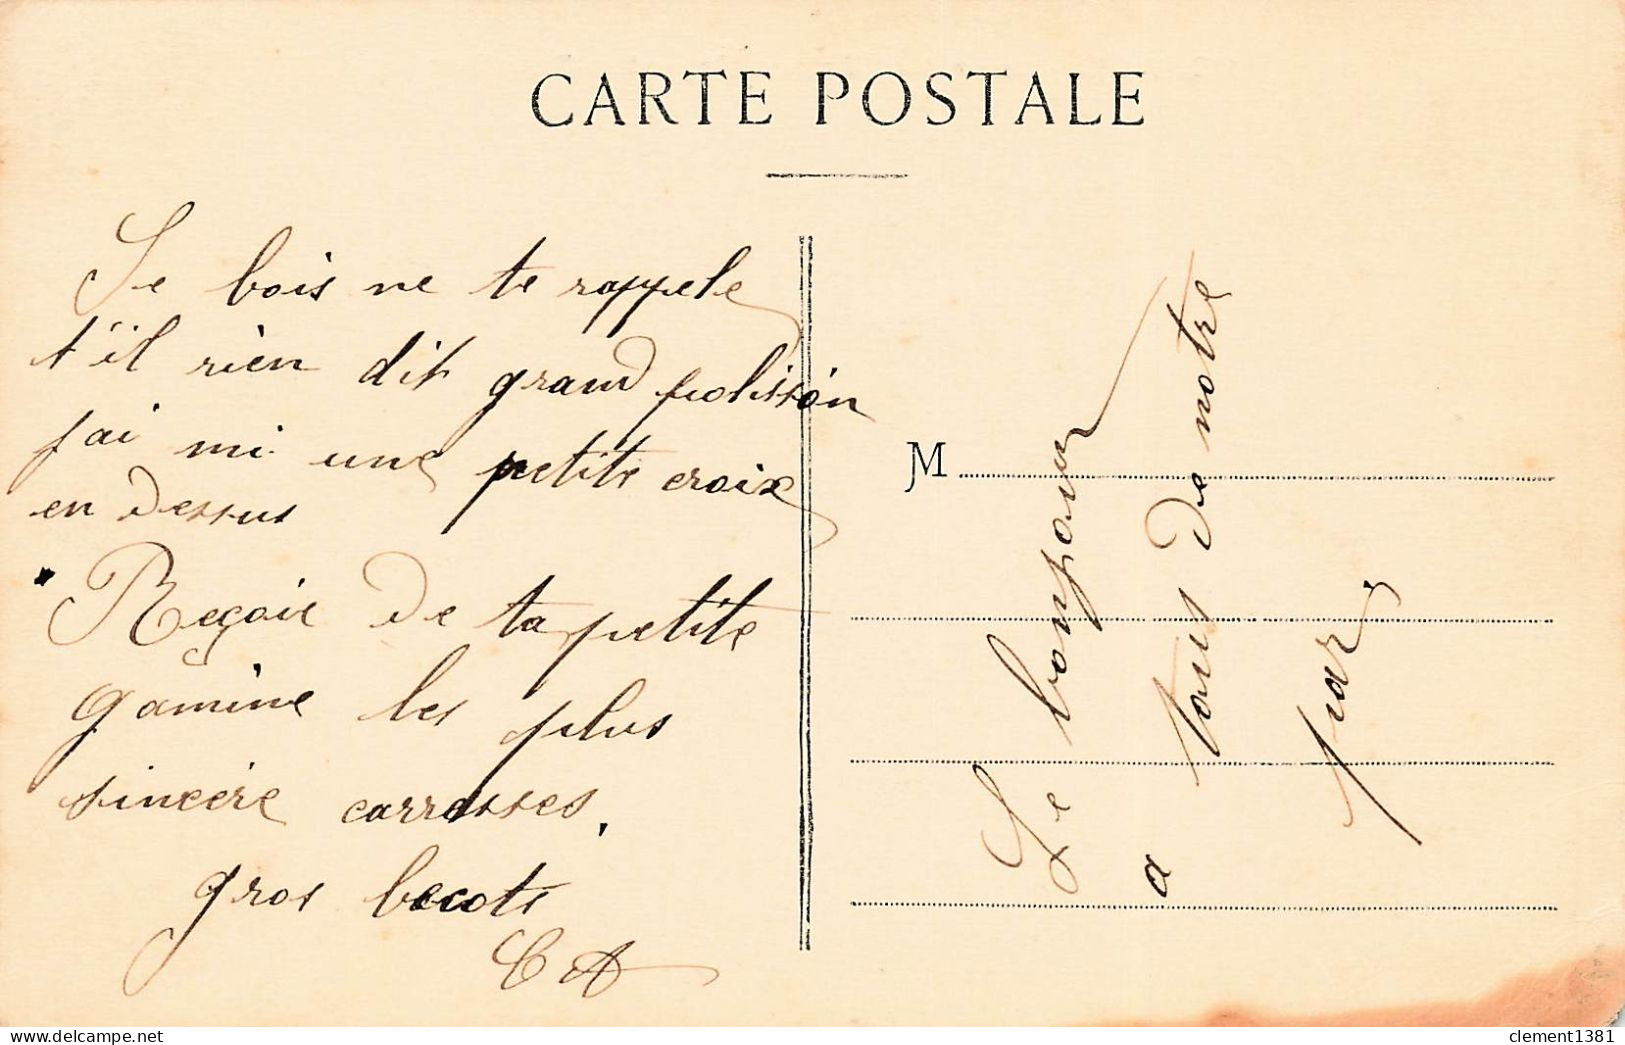 CARTE POSTALE
Le bois ne te rappele
t'il rien dit grand polisson
j'ai mi une petite croix
en dessus
Reçoie de ta petite
gamine les plus
sincère carresses.
gros becots
C A
M
Le bonjour
a tous de notre
par
clement1381